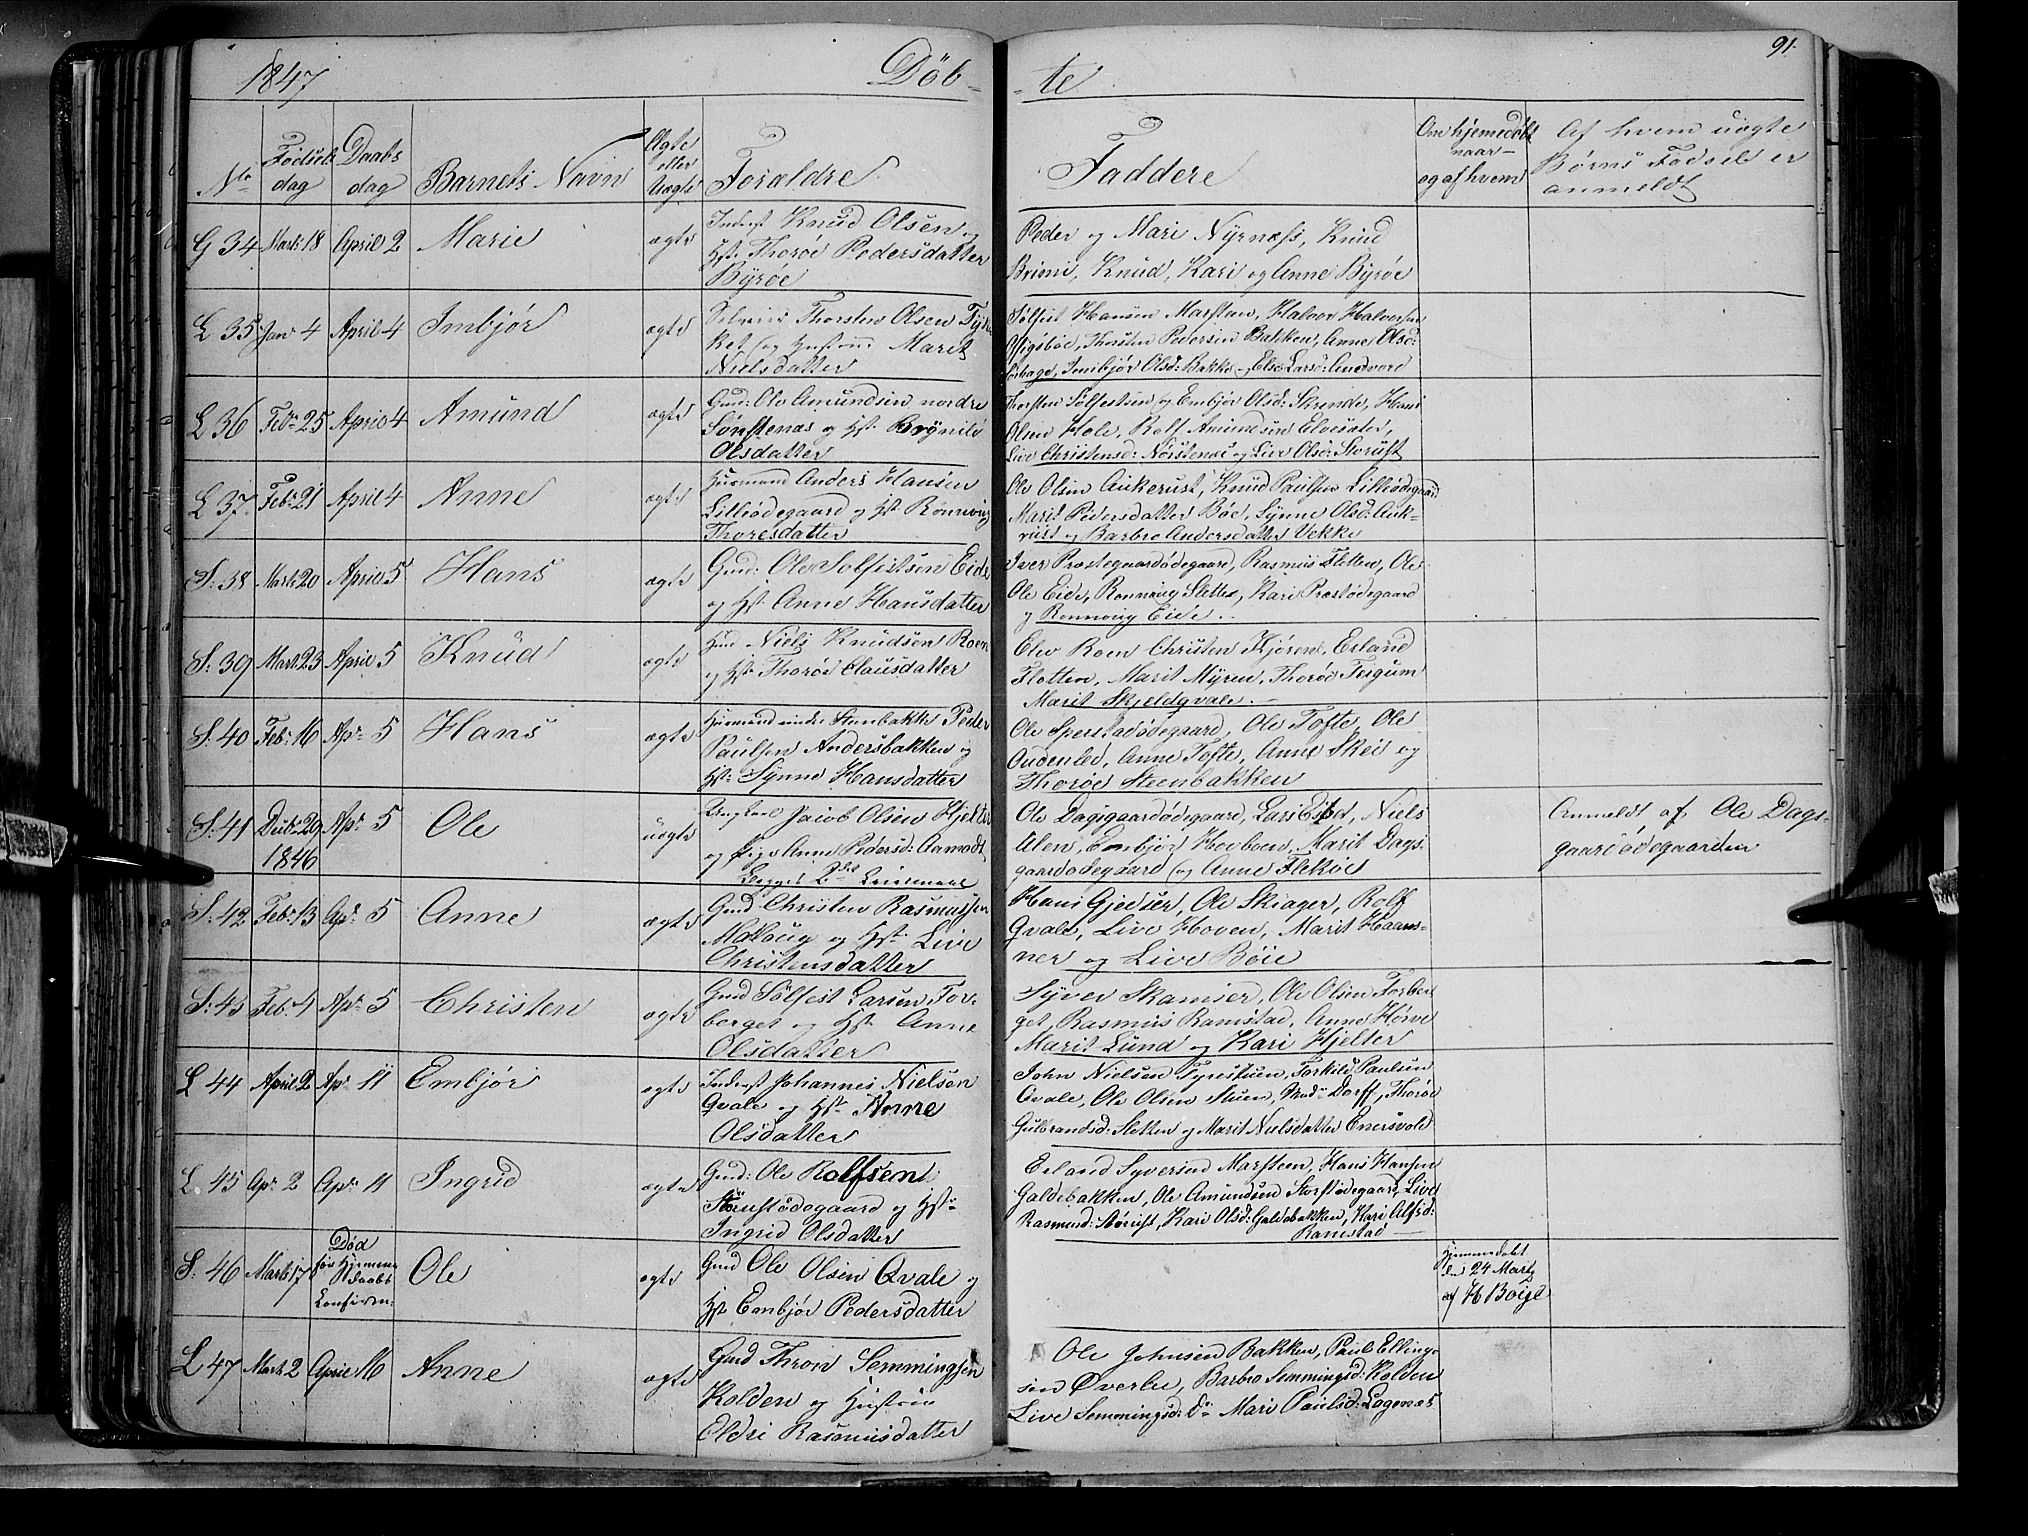 1847 Døb- -te 91.
No Fødsels dag Daabs dag Barnets Navn Ægte eller Uægte Forældre Faddere Om hjemedøbt naar og af hvem Af hvem uægte Børns Fødsel er anmeldt
G 34 Marts 18 April 2 Marie ægte
Inderst Knud Olsen og
Hst: Thorøe Pedersdatter
Byrøe
Peder og Mari Nyrness, Knud
Brimi, Knud, Kari og Anne Byrøe
L 35 Jan: 4 April 4 Imbjør ægte
Thorsten Olsen
og Hustrue Marit
Nielsdatter
Sølfest Hansen Marstan, Halvor Halvorsen
Thorsten Pedersen Bakken, Anne Olsd:
Imbjør Olsd: Bakke og Else Larsd: Andvord
L 36 Feb: 25 April 4 Amund ægte
Gmd: Ole Amundsen nordre
Sønstenæs og Hst: Brynild
Olsdatter
Thorsten Sølfestsen og Embjør Olsd: Skrinde, Hans
Olsen Hole, Rolf Amundsen Elvesæter,
Live Christensd: Nørstenæs og Live Olsd: Storust
L 37 Feb: 21 April 4 Anne ægte
Husmand Anders Hansen
Lilleødegaard og Hst: Rønnoug
Thoresdatter
Ole Olsen Aukerust, Knud Paulsen Lilleødegaard
Marit Pedersdatter Bøe, Synne Olsd: Auk-
rust og Barbro Andersdatter Vekke
S: 38 Marts 20 April 5 Hans ægte
Gmd: Ole Solfestsen Eide
og Hst: Anne Hansdatter
Iver Prestegaardødegaard, Rasmus Sletten, Ole
Ole Eide, Ronnoug Slette, Kari Præstødegaard
og Ronnoug Eide.
S: 39 Marts 23 April 5 Knud ægte
Gmd Niels Knudsen Roen
og Hst: Thorøe Clausdatter
Elev Roen Christen Kjøren, Erland
Flotten, Marit Myren, Thorøe Fugum
Marit Skjeldqvale.
S: 40 Feb: 16 Apr: 5 Hans ægte
Husmand under Stenbakke Peder
Paulsen Andersbakken og
Hst: Synne Hansdatter
Ole Sperstadødegaard, Ole Tofte, Ole
Andenled, Anne Tofte, Anne Skei og
Thorøe Steenbakken
S: 41 Decb: 29 1846 Apr: 5 Ole uægte
Ungkarl Jacob Olsen Hjelter
og Pige Anne Pedersd: Aamodt
Begges 2det Leiermaal
Ole Dagsgaardødegaard, Lars Elstad, Niels
Ulen, Embjør Hovboen, Marit Dags-
gaardødegaard og Anne Flekøe
Anmeldt af Ole Dags-
gaardødegaarden
S: 42 Feb: 13 Apr: 5 Anne ægte
Gmd Christen Rasmussen
Molaug og Hst: Live
Christensdatter
Hans Gjedser, Ole Skiager, Rolf
Qvale, Live Hoven, Marit Haans-
ner og Live Bøie
S: 43 Feb: 4 Apr: 5 Christen ægte
Gmd Sølfest Larsen For-
berget og Hst: Anne
Olsdatter
Syver Skamser, Ole Olsen Forber-
get, Rasmus Ramstad, Anne Hørve
Marit Lund og Kari Hjelter
L 44 April 2 Apr: 11 Embjør ægte
Inderst Johannes Nielsen
Qvale og Hst: Anne
Olsdatter
John Nielsen Fyrestuen, Torkild Paulsen
Qvale, Ole Olsen Stuen, Mad: Dorff, Thorøe
Gulbrandsd: Sletten og Marit Nielsdatter Enersvold
L. 45 Apr: 2 Apr: 11 Ingrid ægte
Gmd: Ole Rolfsen
og Hst:
Ingrid Olsdatter
Erland Syversen Marsteen, Hans Hansen
Galdebakken, Ole Amundsen Storstødegaard, Live
Rasmusd: Størust, Kari Olsd: Galdebakken, Kari Alfsd:
Ramstad
S: 46 Marts 17 Død før Hjemme Daabs Confirm: Ole ægte
Gmd Ole Olsen Qvale og
Hst: Embjør Pedersdatter
Hjemmedøbt
den 24 Marts
af H Boige
L 47 Marts 2 April 16 Anne ægte
Gmd Thron Semmingsen
Kolden og Hustrue
Eldri Rasmusdatter
Ole Johnsen Bakken, Paul Elling-
sen Øverlie, Barbro Semmingsd: Kolden
Live Semmingsd: Do Mari Paulsd: Lagenæs